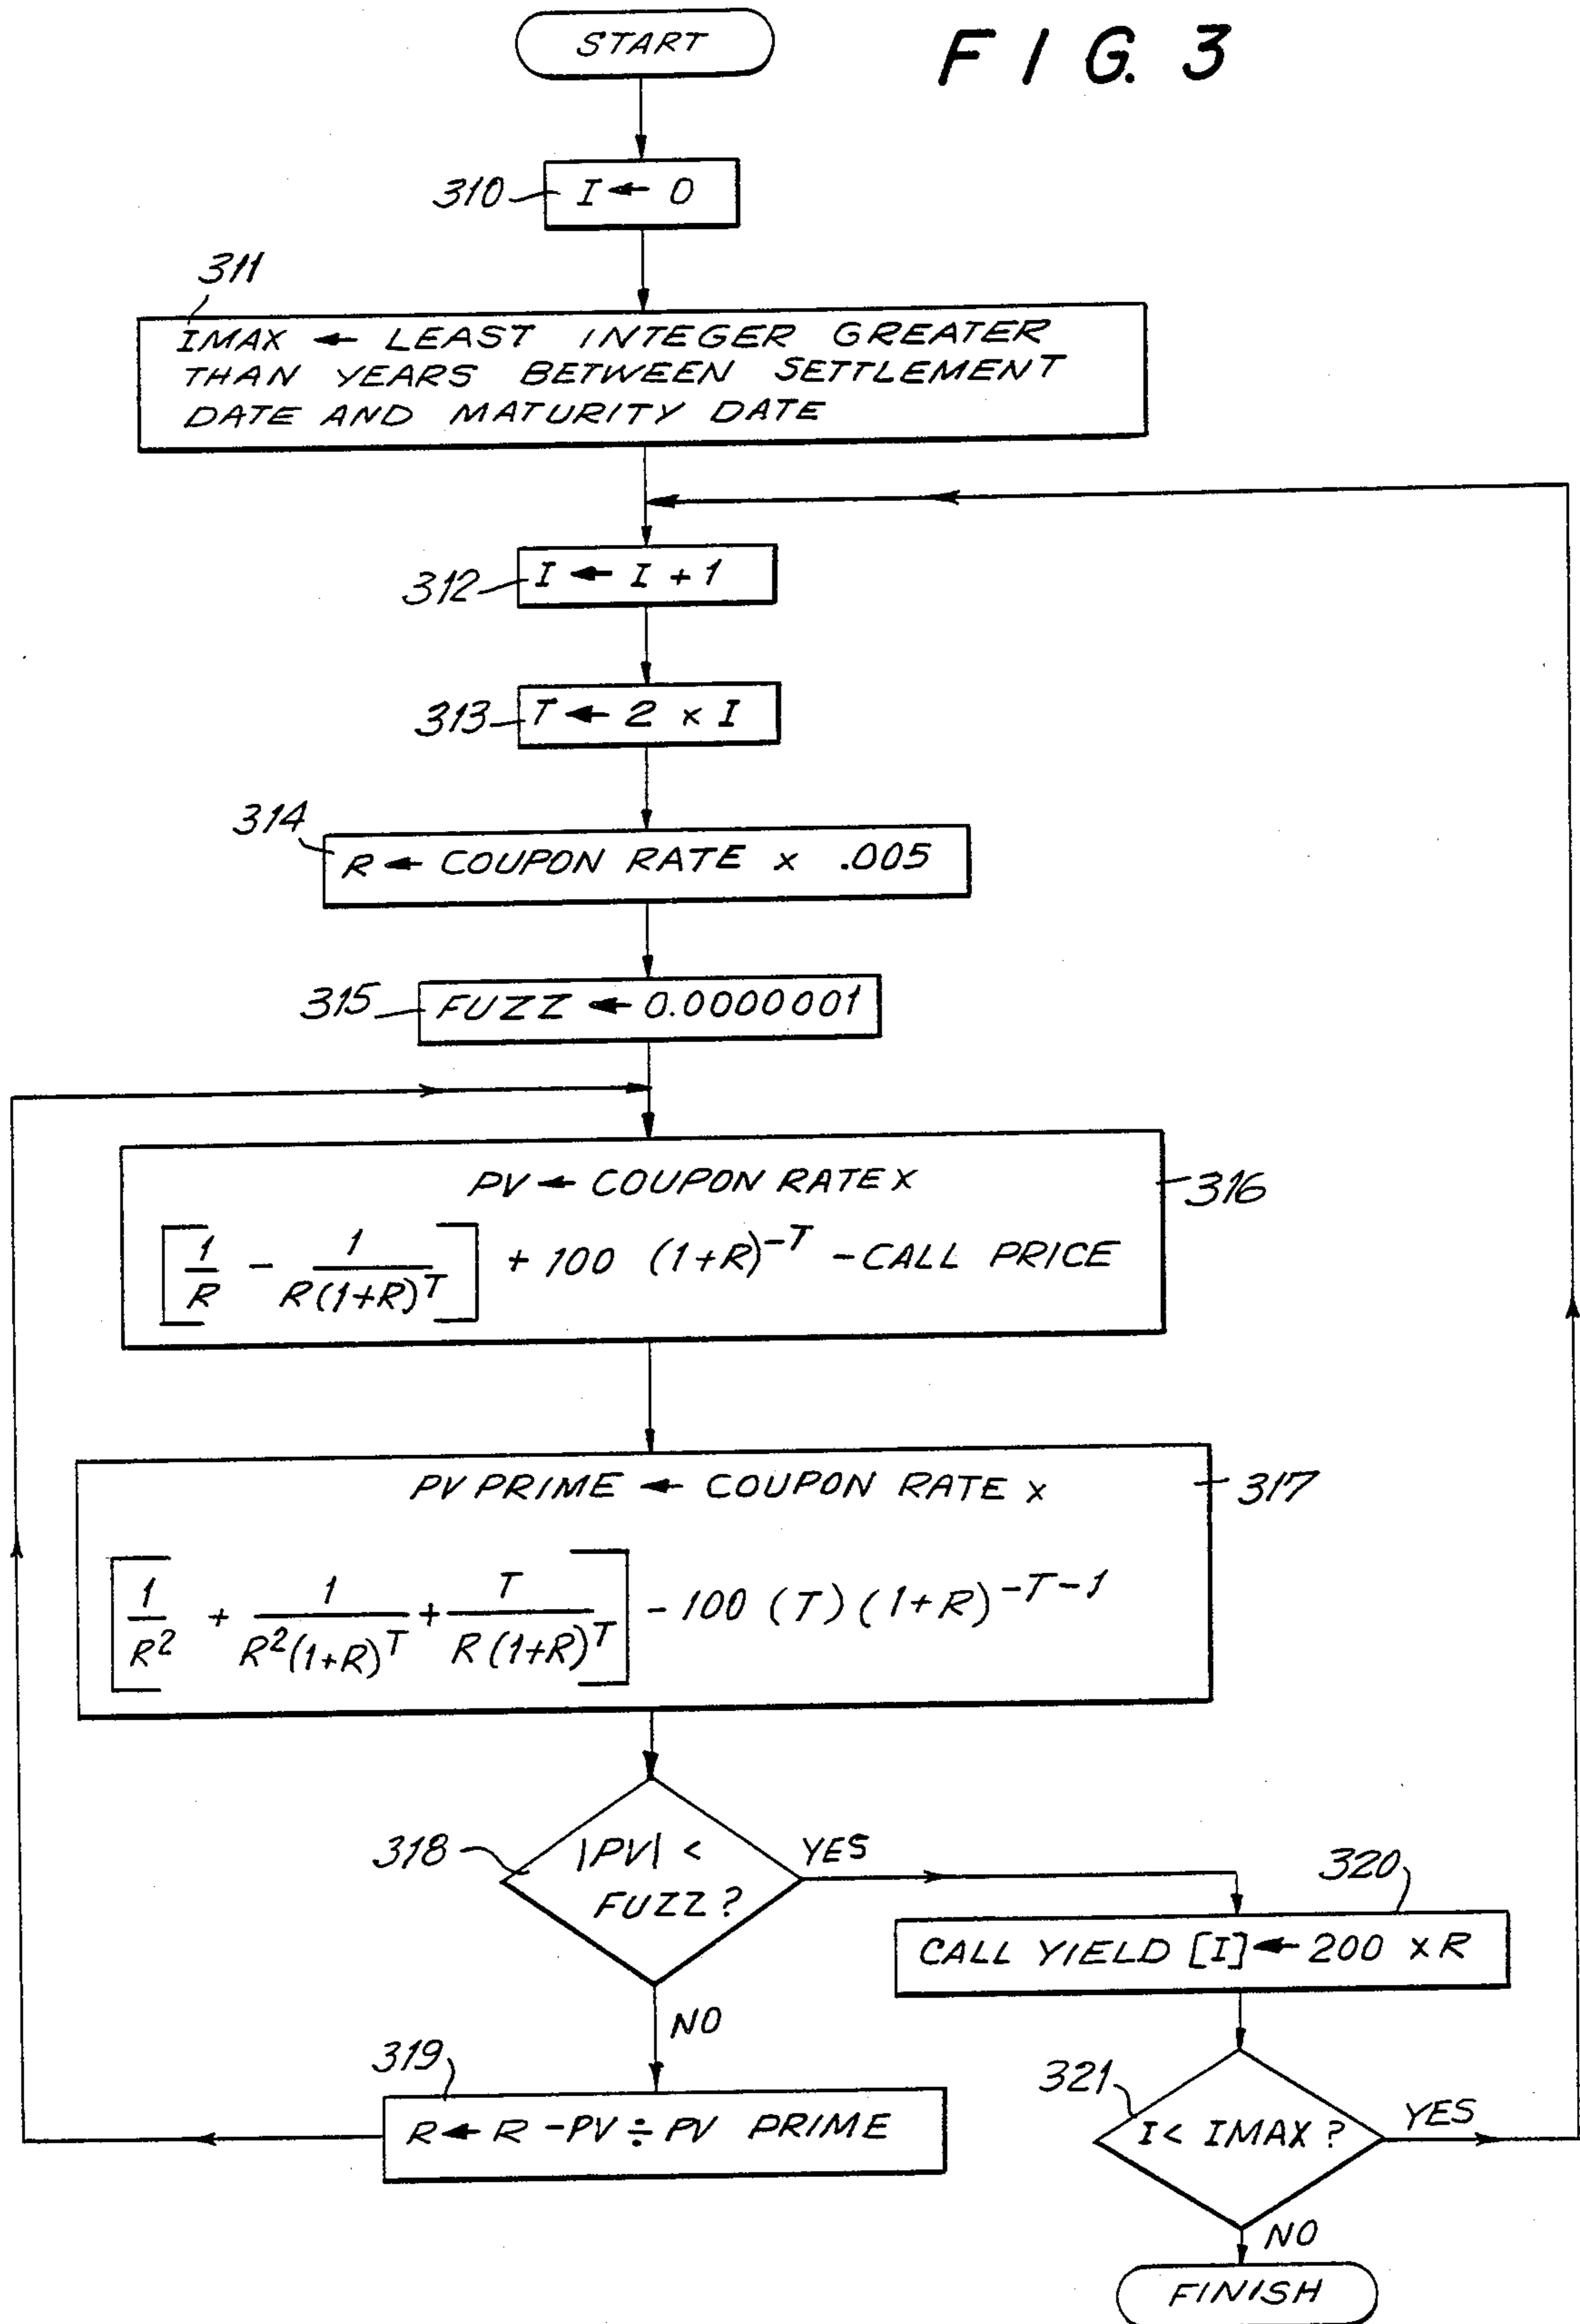 START
FIG. 3
310
I ← 0
311
IMAX ← LEAST INTEGER GREATER
THAN YEARS BETWEEN SETTLEMENT
DATE AND MATURITY DATE
312
I ← I + 1
313
T ← 2 x I
314
R ← COUPON RATE x .005
315
FUZZ ← 0.0000001
PV ← COUPON RATE x
316
[1/R - 1/R(1+R)^T] + 100 (1+R)^-T - CALL PRICE
PV PRIME ← COUPON RATE x
317
[1/R^2 + 1/R^2(1+R)^T + T/R(1+R)^T] - 100 (T) (1+R)^-T-1
318
|PV| <
FUZZ?
YES
320
CALL YIELD [I] ← 200 x R
NO
319
R ← R - PV ÷ PV PRIME
321
I < IMAX?
YES
NO
FINISH